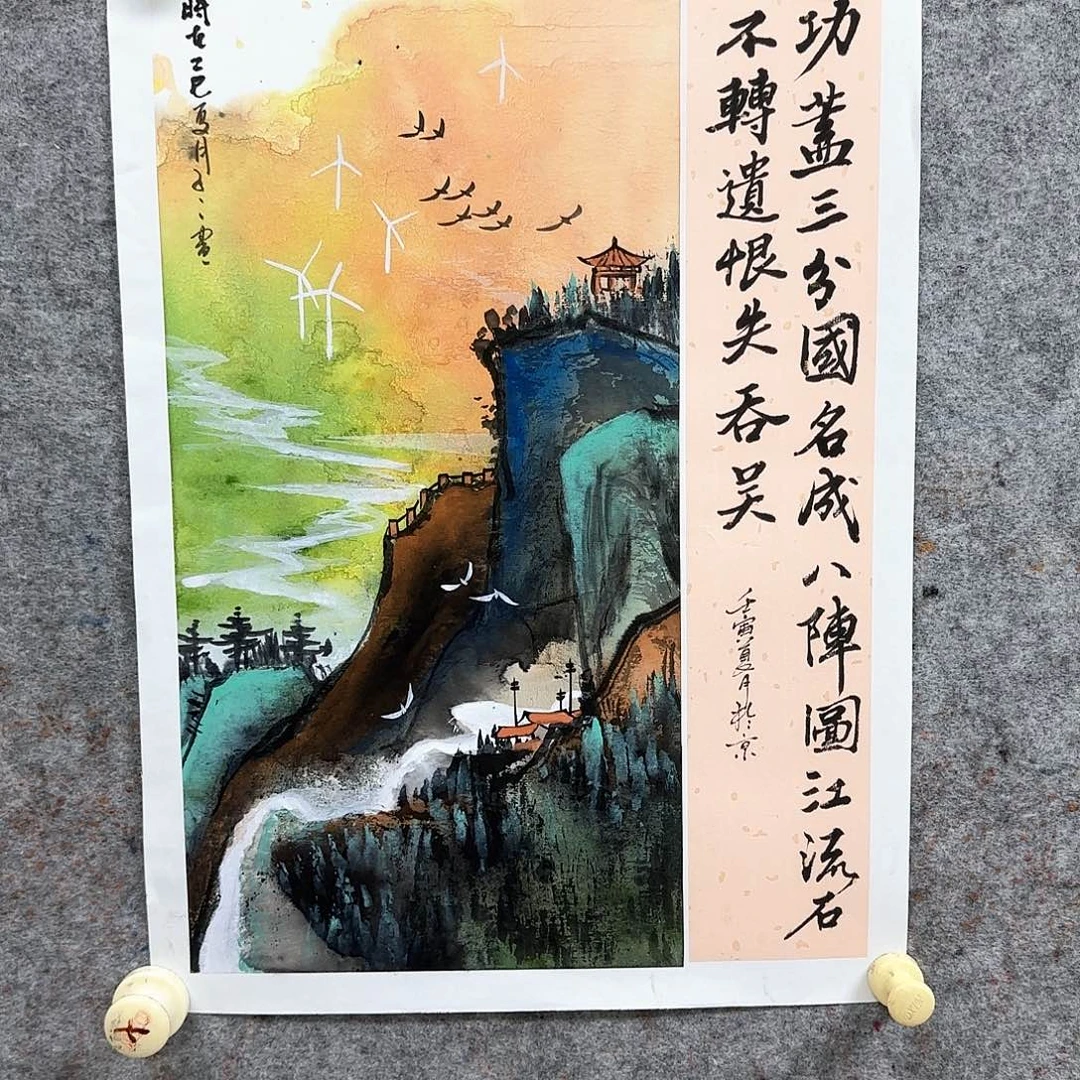 功蓋三分國名成八陣圖江流石
不轉遺恨失吞吴
壬寅夏月於京
時在乙巳夏月